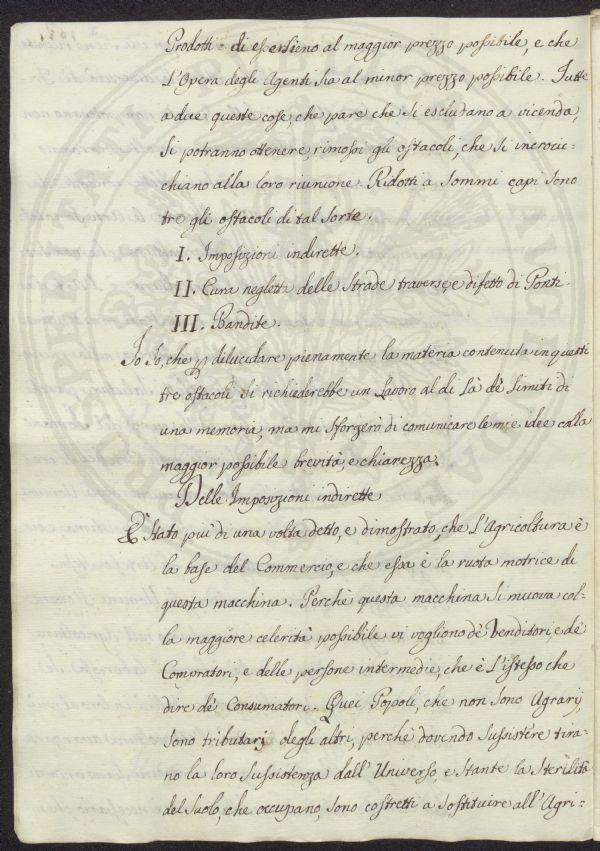 Prodotti di essi sieno al maggior prezzo possibile, e che
l'Opera degli Agenti sia al minor prezzo possibile. Tutte
a due queste cose, che pare che si escludano a vicenda,
si potranno ottenere, rimossi gli ostacoli, che s'incroic-
chiano alla loro riunione. Ridotti a sommi capi sono
tre gli ostacoli di tal sorte.
I. Imposizioni indirette.
II. Cura negletta delle Strade traverse, e difetto di Ponti.
III. Bandite.
Io so, che p dilucidare pienamente la materia contenuta in questi
tre ostacoli vi richiederebbe un Lavoro al di là de' Limiti di
una memoria, ma mi sforzerò di comunicare le mie idee colla
maggior possibile brevità, e chiarezza.
Delle Imposizioni indirette
È stato più di una volta detto, e dimostrato, che l'Agricoltura è
la base del Commercio, e che essa è la ruota motrice di
questa macchina. Perchè questa macchina si muova col-
la maggiore celerità possibile vi vogliono de' Venditori, e de'
Compratori, e delle persone intermedie, che è l'istesso che
dire de' Consumatori. Quei Popoli, che non sono Agrarj,
sono tributarj degli altri, perchè dovendo sussistere tira-
no la loro sussistenza dall'Universo e stante la sterilità
del suolo, che occupano, sono costretti a sostituire all'Agri-